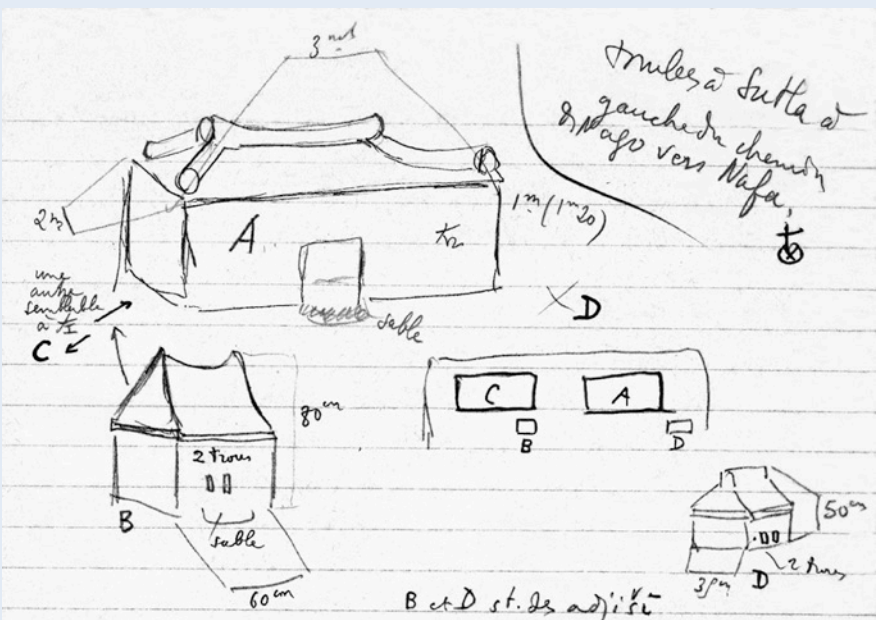 3 m
tombes à Sutta à
gauche du chemin
Nago vers Nafa,
2 m
A
1m (1m20)
une
autre
semblable
à
C
sable
D
80 cm
2 trous
B
sable
60 cm
C
A
B
D
50 cm
D
2 trous
B et D st. des adjisē